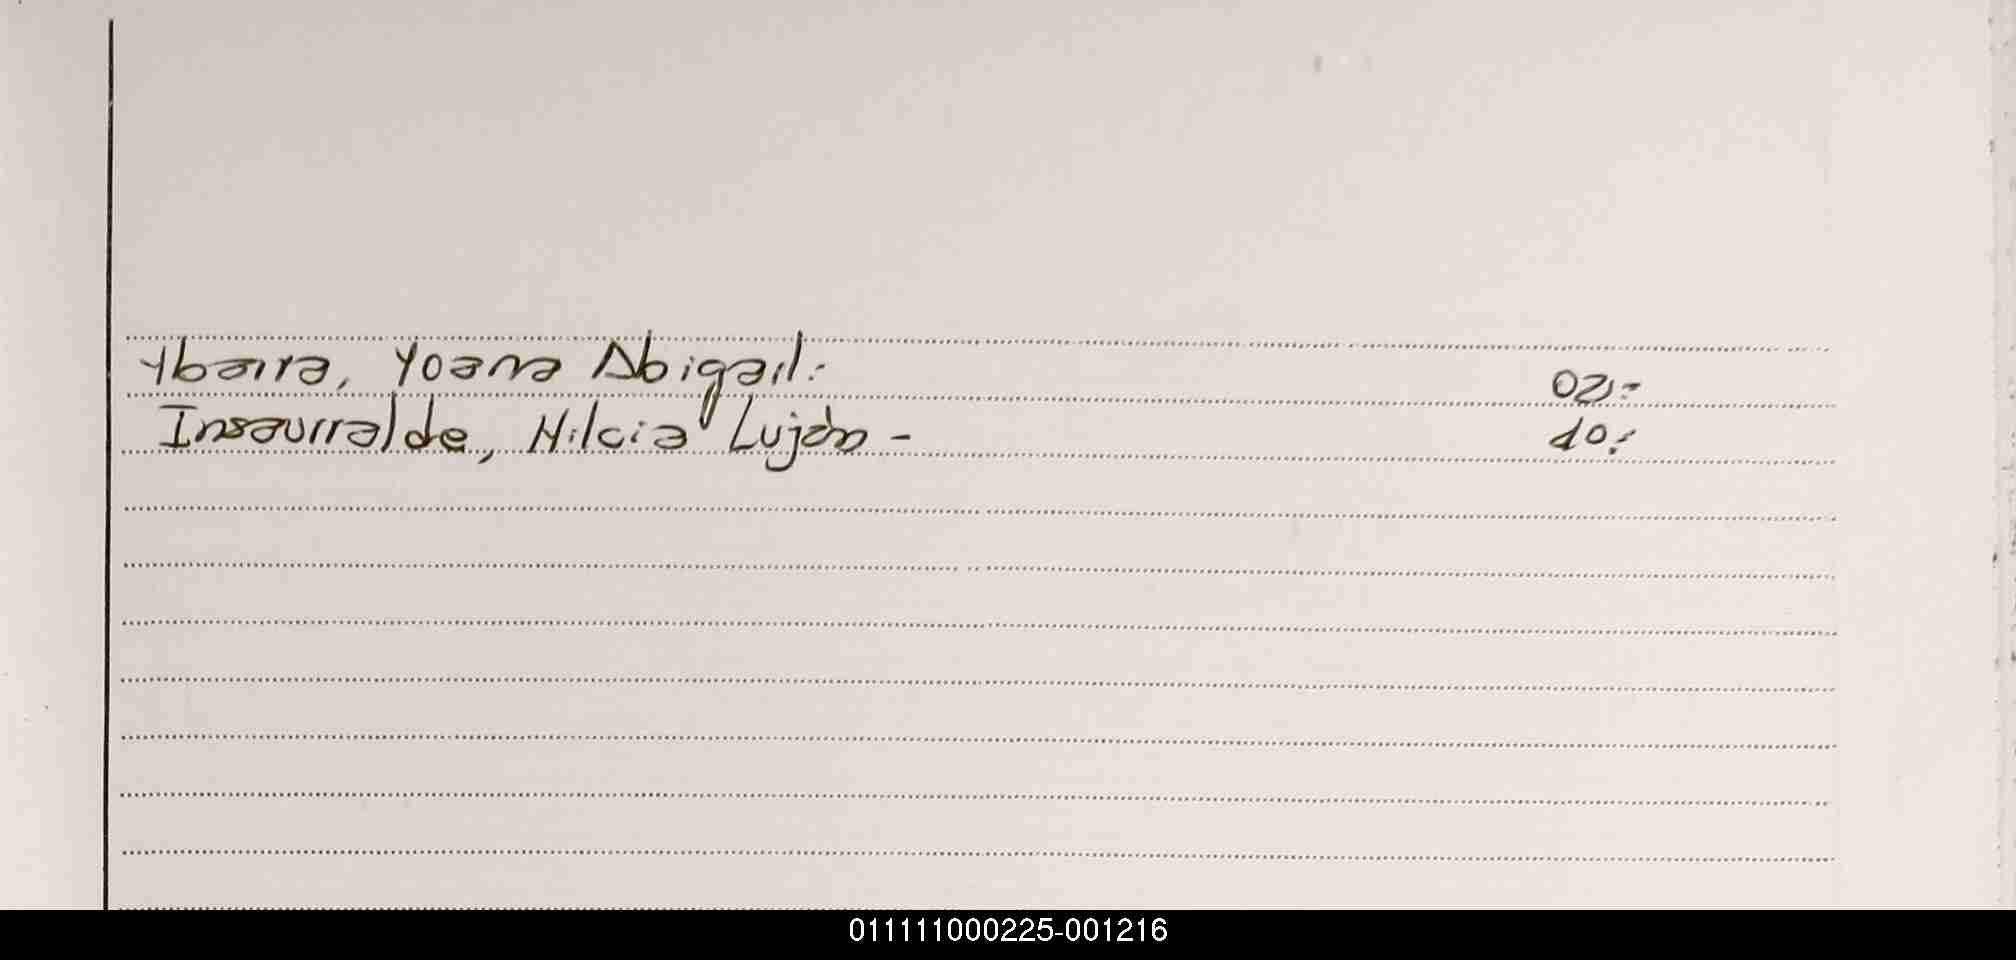 Ybarra, Yoana Abigail.-
Insaurralde, Nilcia Luján -
02.-
10.-
011111000225-001216